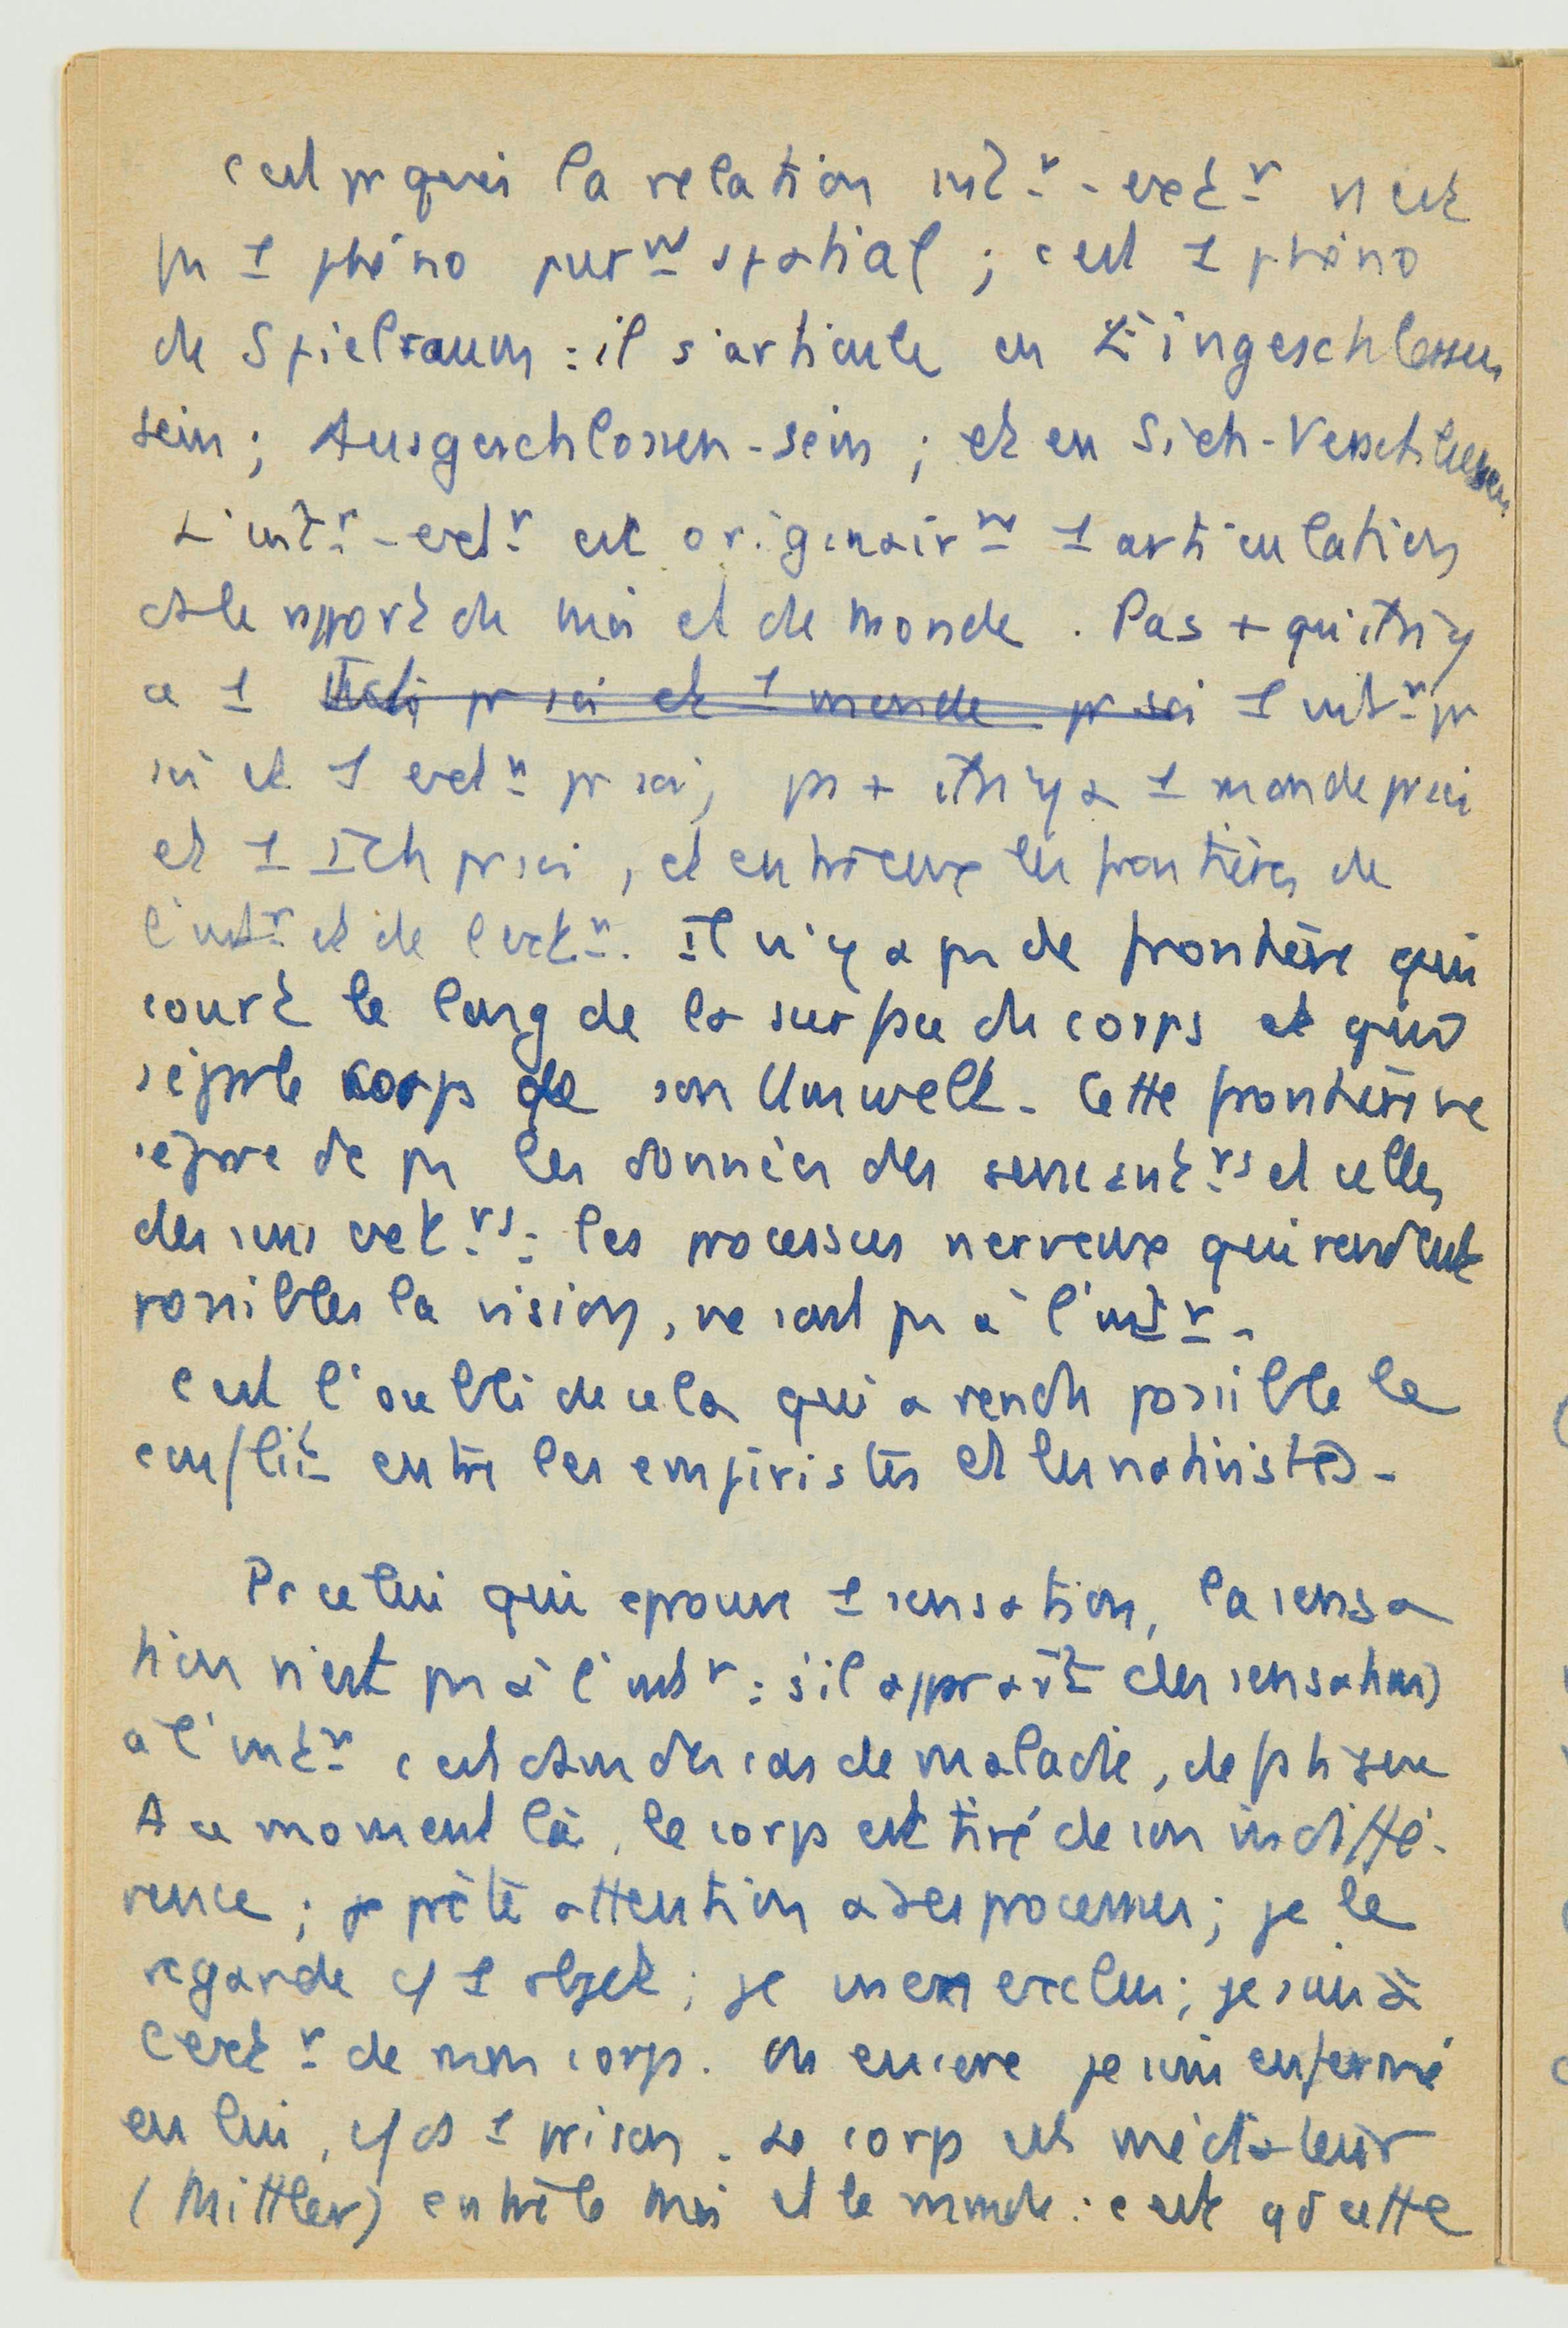 c'est pr quoi la relation intr - extr n'est
pas 1 phéno purnt spatial ; c'est 1 phéno
de Spielraum : il s'articule en Eingeschlossen
sein ; Ausgeschlossen-sein ; et en Sich-Verschliessen
L'intr - extr est originairnt 1 articulation
ds le rpport de moi et de monde . Pas + qu'
a 1 Ich pr soi et 1 monde pr soi 1 intr pr
soi et 1 extr pr soi, ps + 1 monde pr soi
et 1 Ich pr soi , et entre eux les frontières de
l'intr et de l'extr. Il n'y a pas de frontière qui
court le long de la surface du corps et qui
sépare le corps de son Umwelt - Cette frontière ne
sépare pas les données des sens intrs et celles
des sens extrs : les processus nerveux qui rendent
possibles la vision, ne sont pas à l'intr -
C'est l'oubli de cela qui a rendu possible le
conflit entre les empiristes et les nativistes -
Pr celui qui éprouve 1 sensation, la sensa
tion n'est pas à l'intr : s'il apparaît des sensations
à l'intr c'est dans des cas de maladie, de
A ce moment là, le corps est tiré de son indiffé-
rence ; je prête attention à ses processus ; je le
regarde c/ 1 objet ; je m'en exclus ; je suis à
l'extr de mon corps . Ou encore je suis enfermé
en lui, c/ ds 1 prison . Le corps est médiateur
(Mittler) entre le Moi et le monde : c'est qd cette